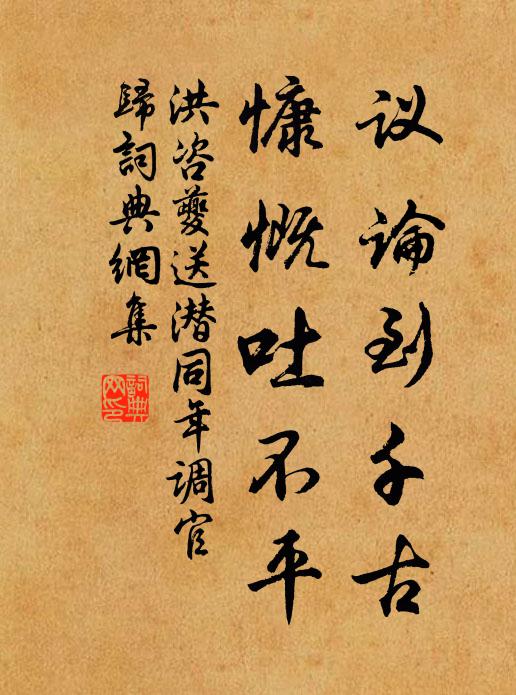 议论到千古
慷慨吐不平
洪咨夔送潜同年调官
歸詞典網集
詞典网印